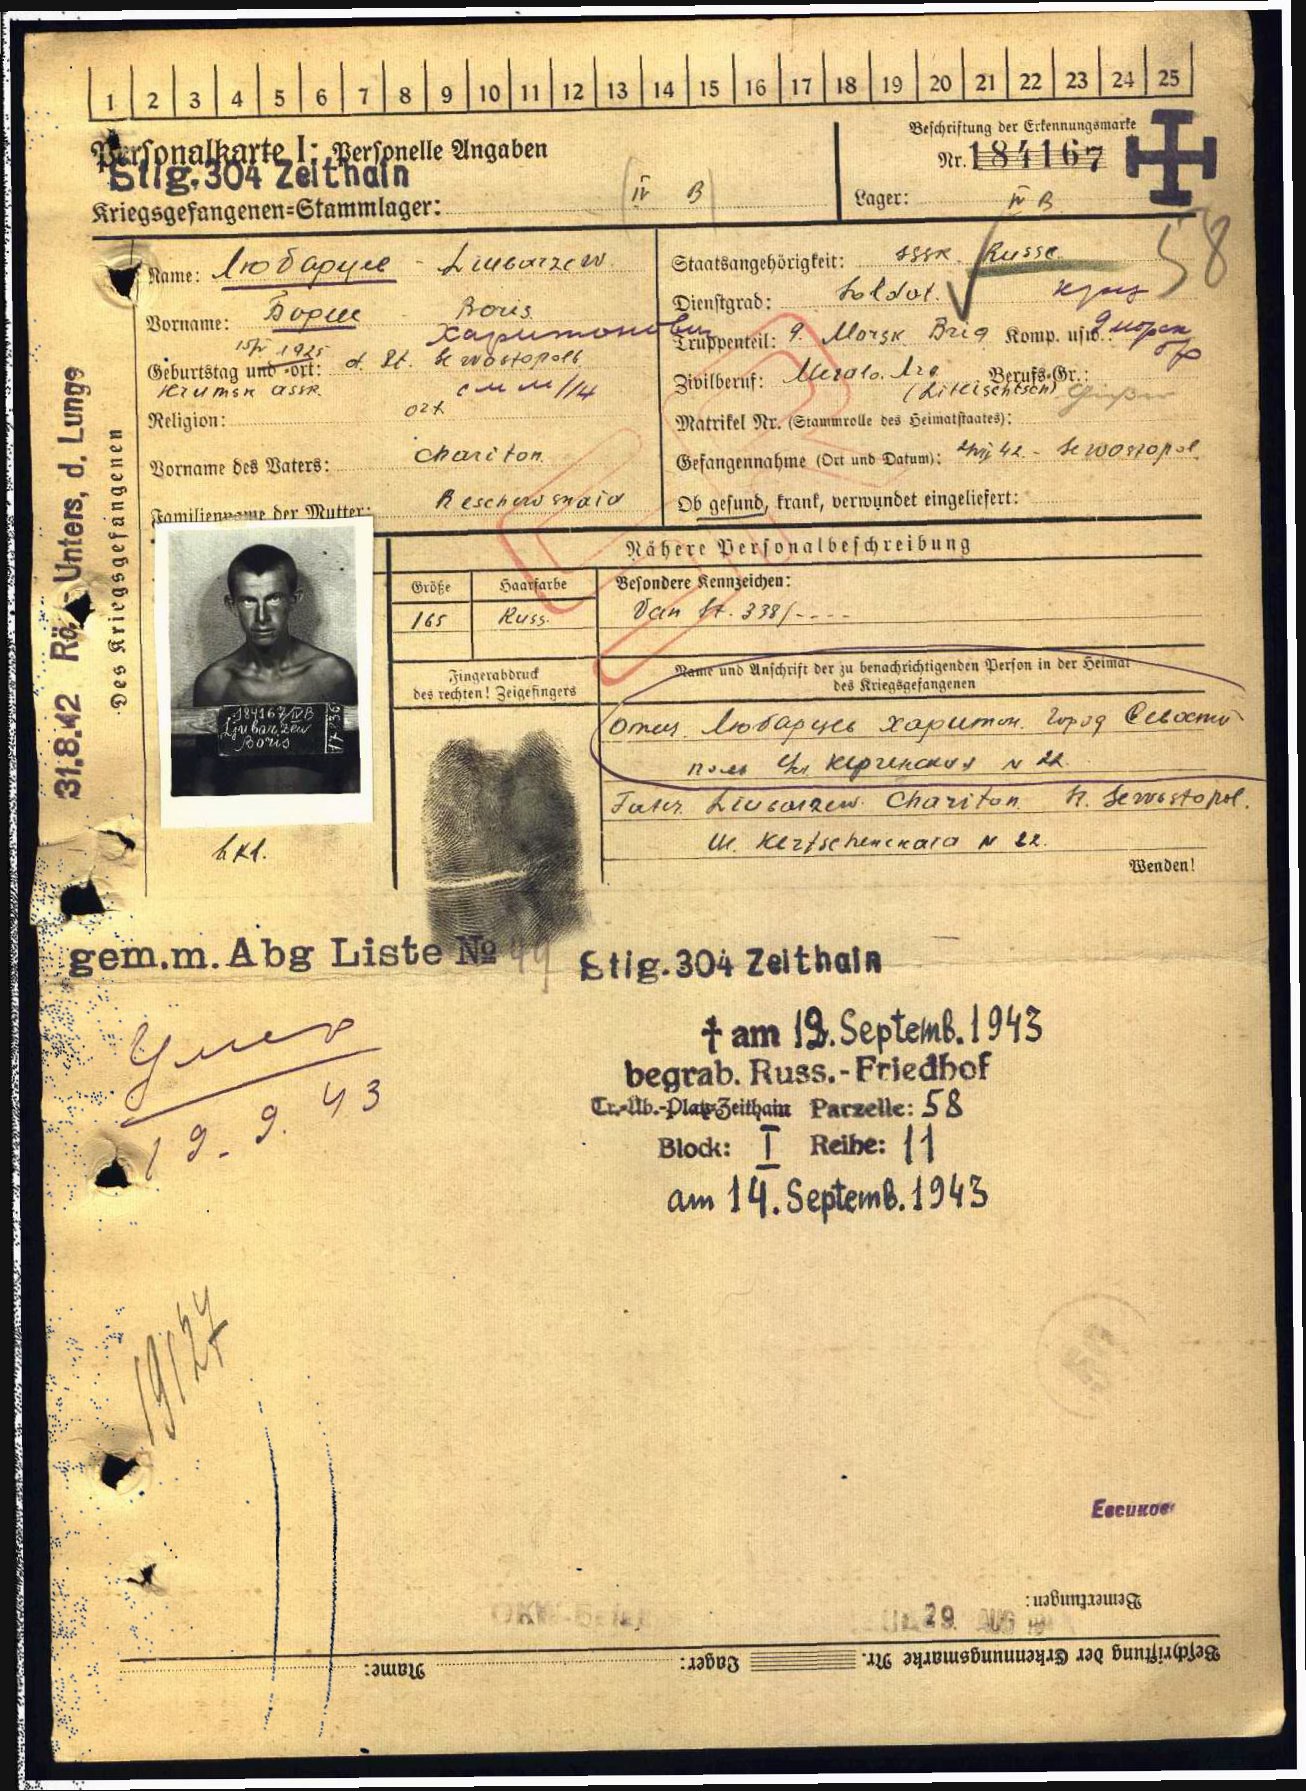 1 2 3 4 5 6 7 8 9 10 11 12 13 14 15 16 17 18 19 20 21 22 23 24 25
Personalkarte I: Personelle Angaben
Stlg. 304 Zeithain
Kriegsgefangenen=Stammlager: IV B
Beschriftung der Erkennungsmarke
Nr. 184167
Lager: IV B
58
Des Kriegsgefangenen
31.8.42 Rö. Unters. d. Lunge
Name: Любарцев - Liubarzew
Vorname: Борис - Boris
Харитонович
Geburtstag und -ort: 1925 Sewostopolb
Krimsk ASSR
Religion: ort
Vorname des Vaters: Chariton
Familienname der Mutter:
Staatsangehörigkeit: SSSR Russe
Dienstgrad: Soldat.
Truppenteil: 9. Morsk Brig Komp. usw.: 9 морск бр
Zivilberuf: Berufs-Gr.:
Matrikel Nr. (Stammrolle des Heimatstaates):
Gefangennahme (Ort und Datum): 42 - Sewostopol
Ob gesund, krank, verwundet eingeliefert:
Nähere Personalbeschreibung
Größe Haarfarbe Besondere Kennzeichen:
165 Russ.
Fingerabdruck
des rechten! Zeigefingers
Name und Anschrift der zu benachrichtigenden Person in der Heimat
des Kriegsgefangenen
Отец Любарцев Харитон. Город Севасто
поль Ул Керченская N 22
Liubarzew Chariton St. Sewostopol.
Ul. Kertschenskaia N 22.
Wenden!
184167/IVB
Ljubarzew
Boris
gem. m. Abg Liste №
Stlg. 304 Zeithain
† am 12. Septemb. 1943
begrab. Russ.-Friedhof
Tr.-Üb.-Platz Zeithain Parzelle: 58
Block: I Reihe: 11
am 14. Septemb. 1943
Умер
19.9.43
Евсиков
Bemerkungen:
29 AUG
Beschriftung der Erkennungsmarke Nr. Lager: Name: